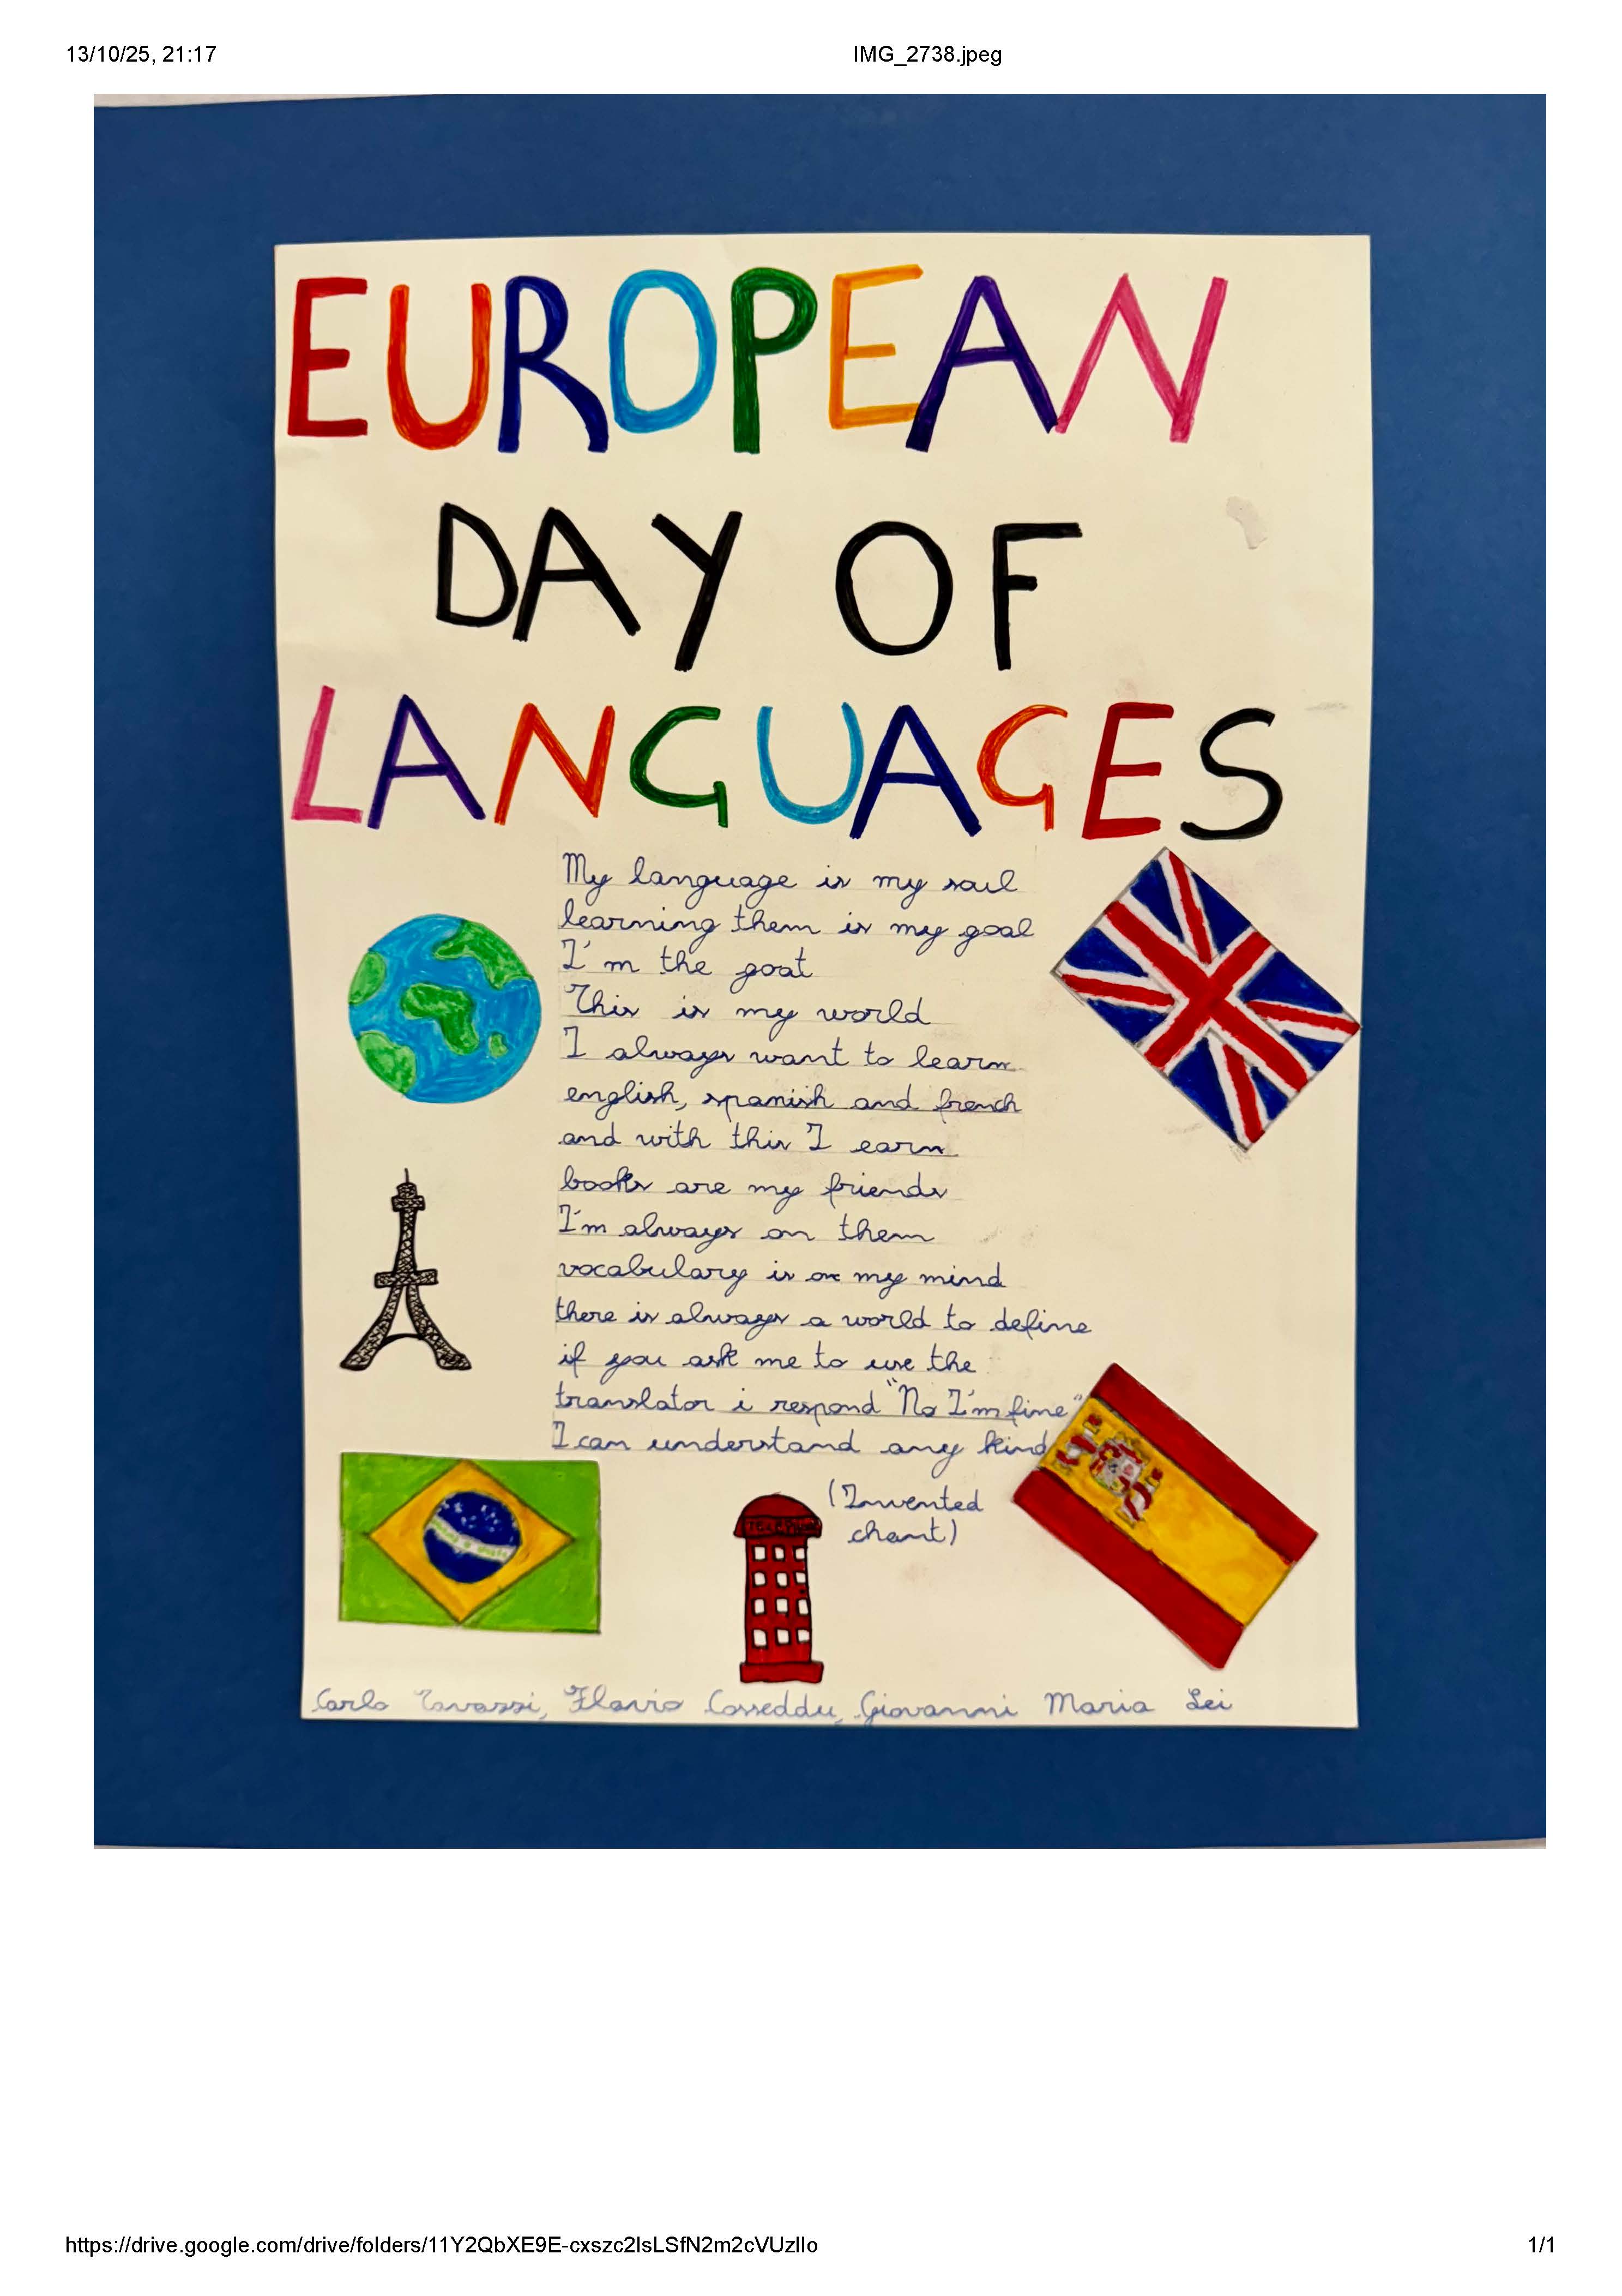 13/10/25, 21:17 IMG_2738.jpeg
EUROPEAN
DAY OF
LANGUAGES
My language is my soul
learning them is my goal
I'm the goat
This is my world
I always want to learn
english, spanish and french
and with this I earn
books are my friends
I'm always on them
vocabulary is on my mind
there is always a world to define
if you ask me to use the
translator i respond "No I'm fine"
I can understand any kind
(Invented
chant)
TELEPHONE
Carlo Tavassi, Flavio Cosseddu, Giovanni Maria Lei
https://drive.google.com/drive/folders/11Y2QbXE9E-cxszc2IsLSfN2m2cVUzlIo 1/1